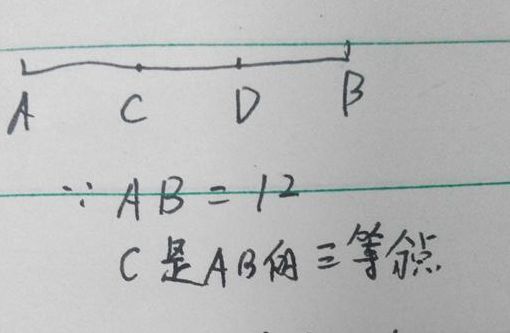 A C D B
∵ AB = 12
C是AB的三等分点